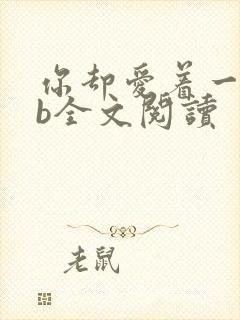 你却爱着一
b全文阅读
老鼠